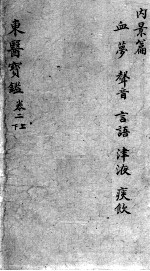 內景篇
血 夢 聲音 言語 津液 痰飮
東醫寶鑑 卷二上下